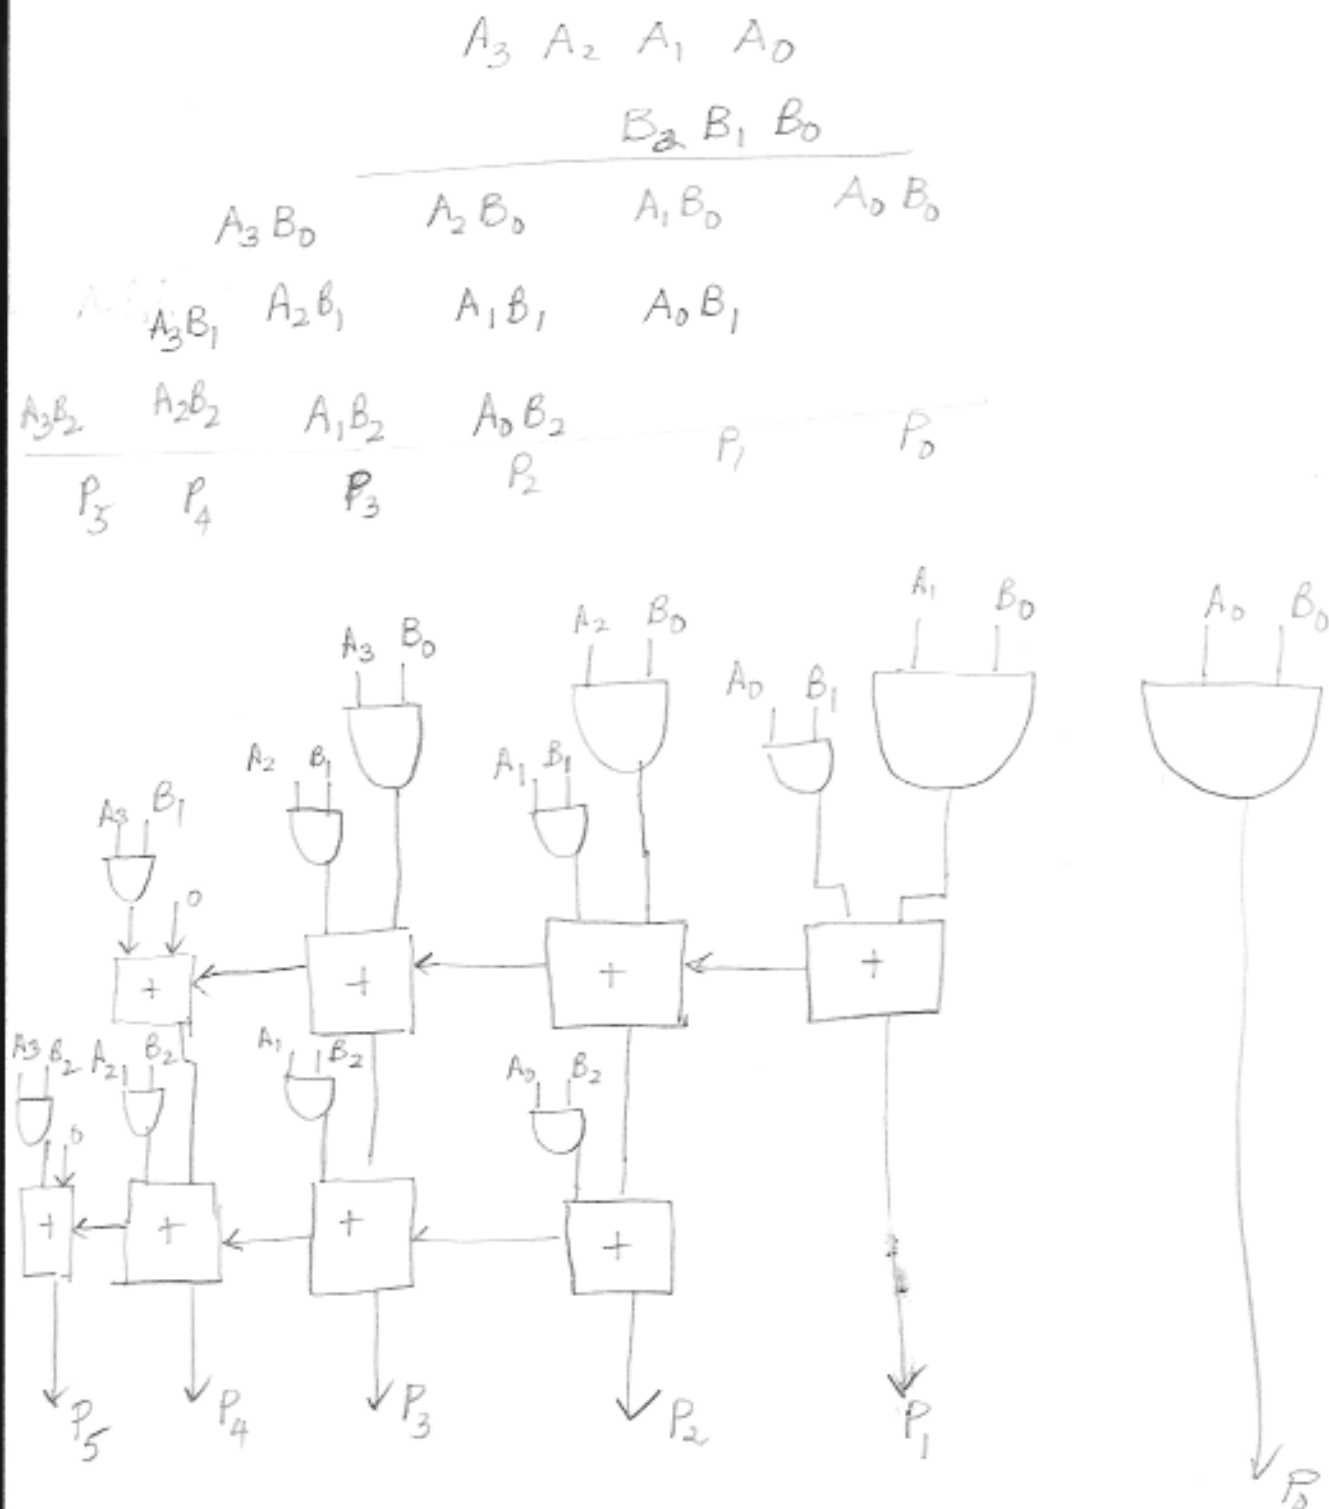 A3 A2 A1 A0
B2 B1 B0
A3B0 A2B0 A1B0 A0B0
A3B1 A2B1 A1B1 A0B1
A3B2 A2B2 A1B2 A0B2
P5 P4 P3 P2 P1 P0
A3 B0 A2 B0 A1 B0 A0 B0
A3 B1 A2 B1 A1 B1 A0 B1
0
+ + + +
A3 B2 A2 B2 A1 B2 A0 B2
0
+ + + +
P5 P4 P3 P2 P1 P0